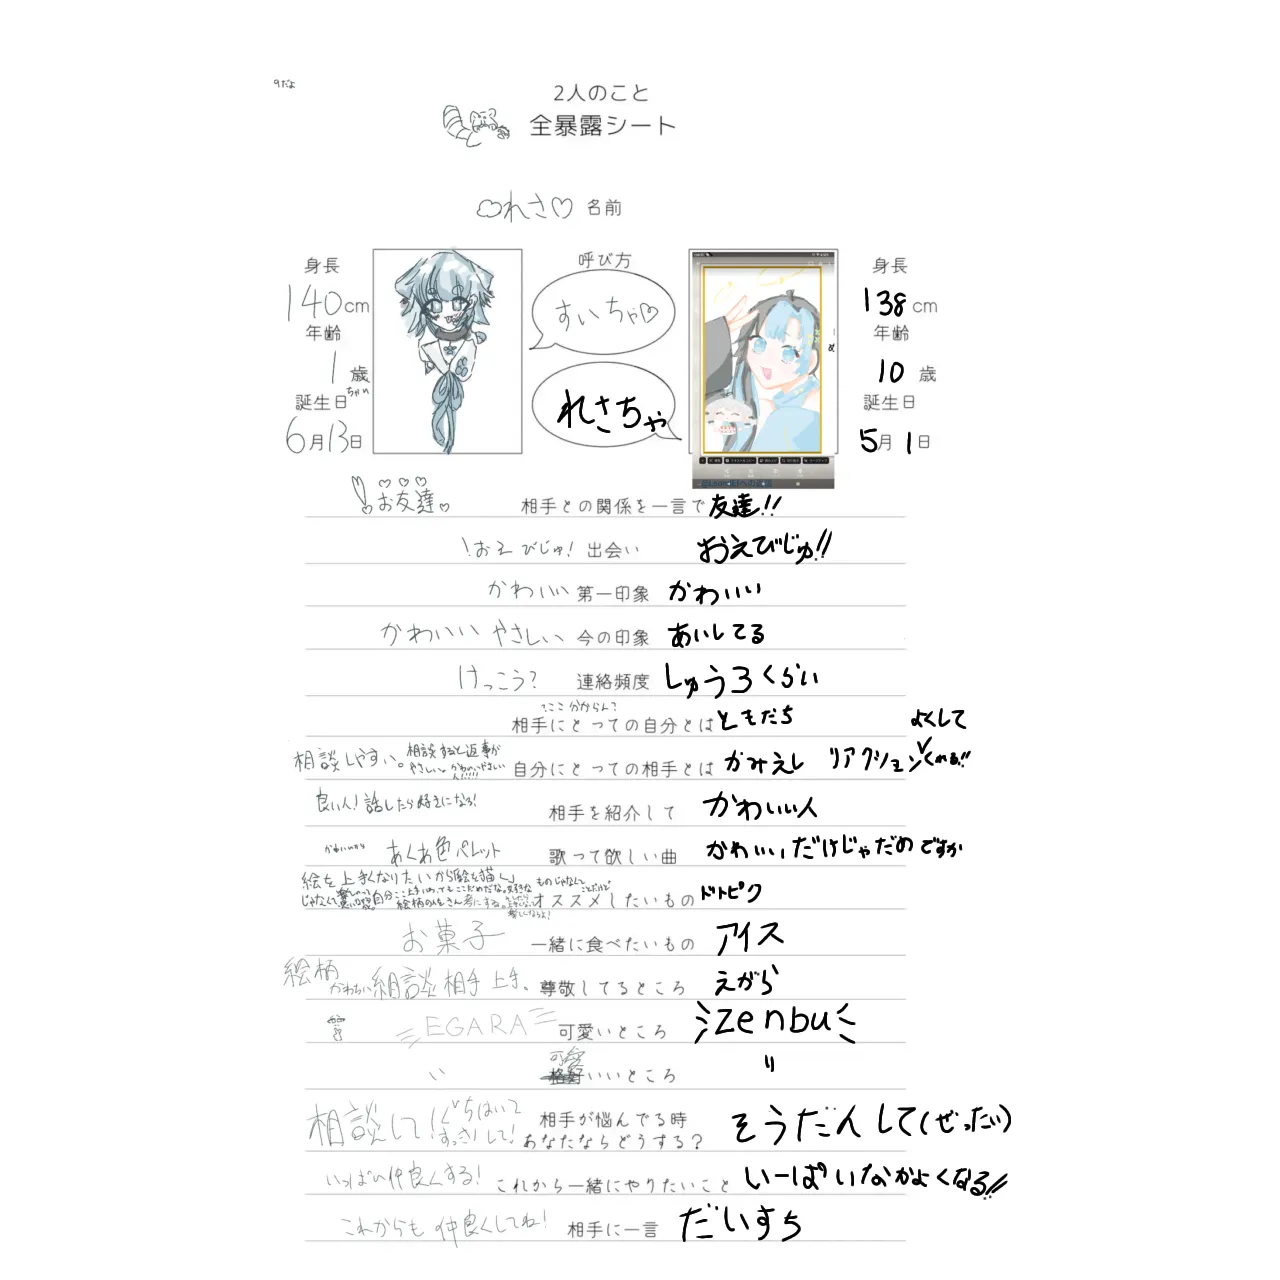 9だよ
2人のこと
全暴露シート
れさ♡ 名前
身長 呼び方 身長
140cm すいちゃ♡ 138cm
年齢 年齢
1歳 れさちゃ 10歳
ちゃい
誕生日 誕生日
6月13日 5月1日
お友達。 相手との関係を一言で 友達!!
!おえびじゅ! 出会い おえびじゅ!!
かわいい 第一印象 かわいい
かわいい やさしい 今の印象 あいしてる
けっこう? 連絡頻度 しゅう3くらい
ここ分からん?
相手にとっての自分とは ともだち よくして
相談しやすい。相談すると返事がやさしい かわいいやさしい人!!!!! 自分にとっての相手とは かみえし リアクションくれる!!
良い人!話したら好きになる! 相手を紹介して かわいい人
かわいいから あくあ色パレット 歌って欲しい曲 かわいいだけじゃだめですか
絵を上手くなりたいから「絵を描く」ものじゃなくて
じゃなくて オススメしたいもの ドトピク
お菓子 一緒に食べたいもの アイス
絵柄 かわちい 相談相手 上手、 尊敬してるところ えがら
EGARA 可愛いところ zenbu
可愛
格好いいところ 〃
相談して! 相手が悩んでる時
すっきりして! あなたならどうする? そうだんして(ぜったい)
いっぱい仲良くする! これから一緒にやりたいこと いーぱいなかよくなる!!
これからも 仲良くしてね! 相手に一言 だいすち